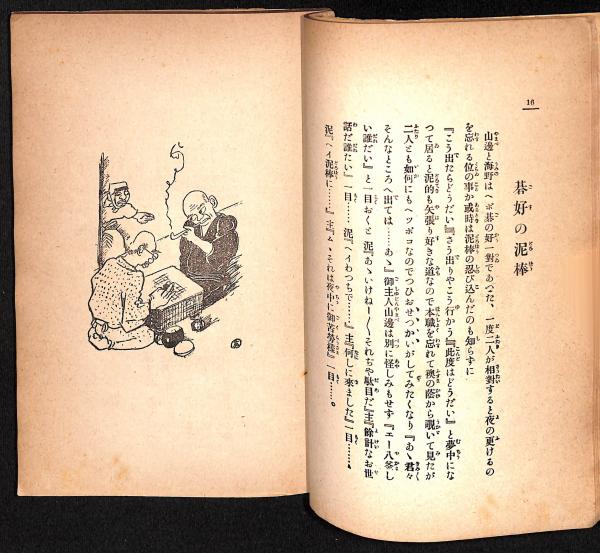 16
碁好の泥棒
山邊と海野はヘボ碁の好一對であつた、一度二人が相對すると夜の更けるの
を忘れる位の事が或時は泥棒の忍び込んだのも知らずに
『こう出たらどうだい』『さう出りやこう行かう『此度はどうだい』と夢中にな
つて居ると泥的も矢張り好きな道なので本職を忘れて襖の蔭から覗いて見たが
二人とも如何にもヘツポコなのでつひおせつかいがしてみたくなり『あゝ君々
そんなところへ出ては……あゝ』御主人山邊は別に怪しみもせず『エー八釜し
い誰だい』と一目おくと泥『あゝいけねー〳〵それぢや駄目だ』主『餘計なお世
話だ誰たい』一目……泥『へイわつちで……』主『何しに來ました』一目……。
泥『ヘイ泥棒に……』主『ムヽそれは夜中に御苦勞樣』一目……。